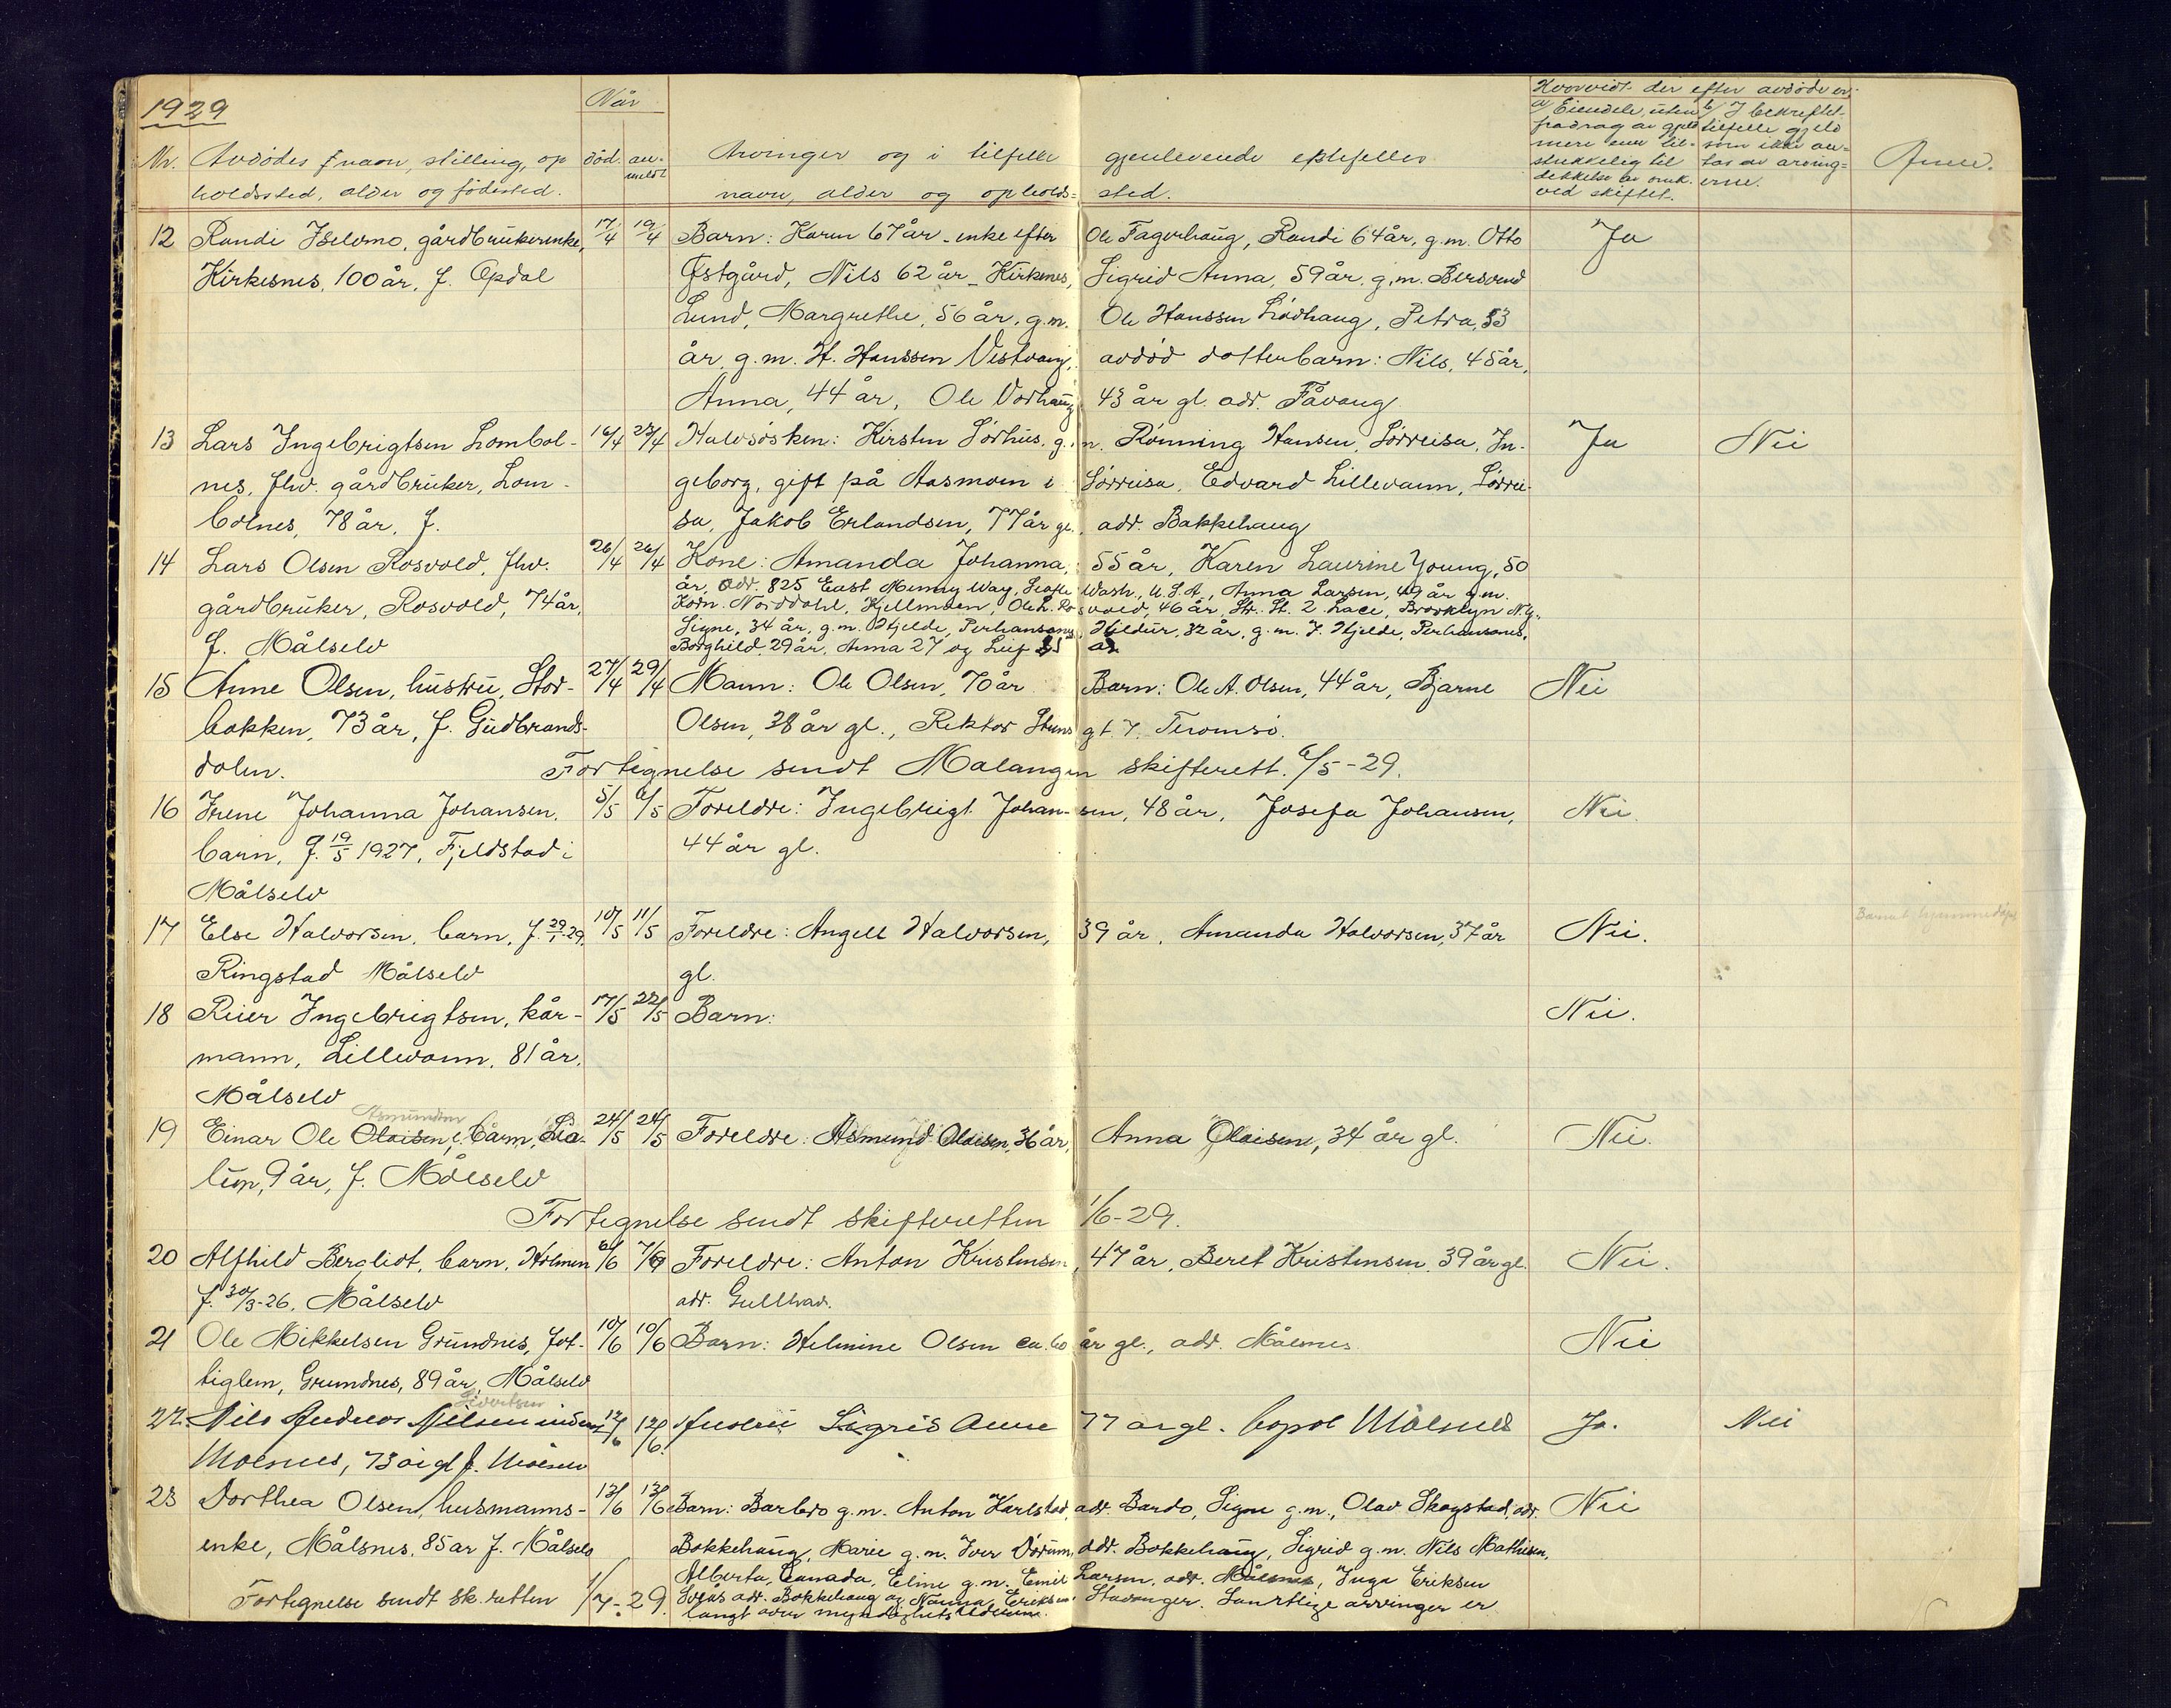 1929
Når
Nr. Avdødes fnavn, stilling, op- død. an-
holdssted, alder og fødested. meldt
Arvinger og i tilfelle gjenlevende ektefelles
navn, alder og opholds- sted.
Hvorvidt der efter avdøde er:
a/ Eiendele, uten
fradrag av gjeld
mere enn til-
strekkelig til
dekkelse av omk.
ved skiftet.
b/ I bekreftet-
tilfelle gjeld
som ikke an-
tas av arving-
erne.
Anm.
12 Randi Iselvmo, gårdbrukerenke, 17/4 19/4 Barn: Karen 67 år - enke efter Ole Fagerhaug, Randi 64 år, g.m. Otto Ja
Kirkesnes, 100 år, f. Opdal Østgård, Nils 62 år - Kirkesnes, Sigrid Anna, 59 år, g.m. Bersvend
Lund, Margrethe, 56 år, g.m. Ole Hanssen Lødhaug, Petra, 53
år, g.m. H. Hanssen Vestvang, avdød datterbarn: Nils, 45 år,
Anna, 44 år, Ole Vorhaug 43 år gl. adr. Fåvang
13 Lars Ingebrigtsen Lombol- 16/4 23/4 Halvsøsken: Kirsten Sørhus, g.m. Rønning Hansen, Sørreisa, In- Ja Nei
nes, fhv. gårdbruker, Lom- geborg, gift på Aasmoen i Sørreisa, Edvard Lillevann, Sørrei-
bolnes, 78 år, f. sa, Jakob Erlandsen, 77 år gl. adr. Bakkehaug
14 Lars Olsen Rosvold, fhv. 26/4 26/4 Kone: Amanda Johanna, 55 år, Karen Laurine Young, 50
gårdbruker, Rosvold, 74 år, år, adr. 825 East Way, Seatle Wash., U.S.A., Anna Larsen, 49 år g.m.
f. Målselv Norddahl, Kjellmoen, Ole L. Rosvold, 46 år, Str. St. 2 Brooklyn N.Y.,
Signe, 34 år, g.m. Hjelde, Perhansnes, Hildur, 32 år, g.m. J. Hjelde, Perhansnes,
Borghild, 29 år, Anna 27 og Leif 25 år
15 Anne Olsen, hustru, Stor- 27/4 29/4 Mann: Ole Olsen, 70 år Barn: Ole A. Olsen, 44 år, Bjarne Nei
bakken, 73 år, f. Gudbrands- Olsen, 38 år gl., Rektor Steens gt. 7, Tromsø.
dalen.
Fortegnelse sendt Malangen skifterett. 6/5-29.
16 Irene Johanna Johansen, 5/5 6/5 Foreldre: Ingebrigt Johan- sen, 48 år, Josefa Johansen, Nei
barn, f. 19/5 1927, Fjeldstad i 44 år gl.
Målselv
17 Else Halvorsen, barn, f. 29/1-29, 10/5 11/5 Foreldre: Angell Halvorsen, 39 år, Amanda Halvorsen, 37 år Nei.
Ringstad Målselv gl.
18 Reier Ingebrigtsen, kår- 17/5 22/5 Barn: Nei.
mann, Lillevann, 81 år,
Målselv
Asmundsen
19 Einar Ole Olaisen, barn, Lia- 24/5 24/5 Foreldre: Asmund Olaisen, 36 år, Anna Olaisen, 34 år gl. Nei.
9 år, f. Målselv
Fortegnelse sendt skifteretten 1/6-29.
20 Alfhild Bergliot, barn, Holmen 6/6 7/6 Foreldre: Anton Kristensen, 47 år, Beret Kristensen, 39 år gl. Nei.
f. 30/3-26, Målselv adr. Gullhav.
21 Ole Mikkelsen Grundnes, fat- 10/6 10/6 Barn: Helmine Olsen ca. 60 år gl., adr. Målsnes Nei
tiglem, Grundnes, 89 år, Målselv
Sivertsen
22. Nils Andreas Nilsen 12/6 12/6 Hustru Sigrid Anne 77 år gl. bopæl Målsnes Ja. Nei
Målsnes, 73 år gl f. Målselv
23 Dorthea Olsen, husmanns- 12/6 13/6 Barn: Barbro g.m. Anton Karlstad, adr. Bardo, Signe g.m. Olav Skogstad, adr. Nei
enke, Målsnes, 85 år f. Målselv Bakkehaug, Marie g.m. Iver Dørum, adr. Bakkehaug, Sigrid g.m. Nils Mathisen,
Alberta, Canada, Eline g.m. Emil Larsen, adr. Målsnes, Inga Eriksen
Fortegnelse sendt sk.retten 1/7-29. adr. Bakkehaug og Nanna Eriksen Stavanger. Samtlige arvinger er
langt over myndighetsalderen.